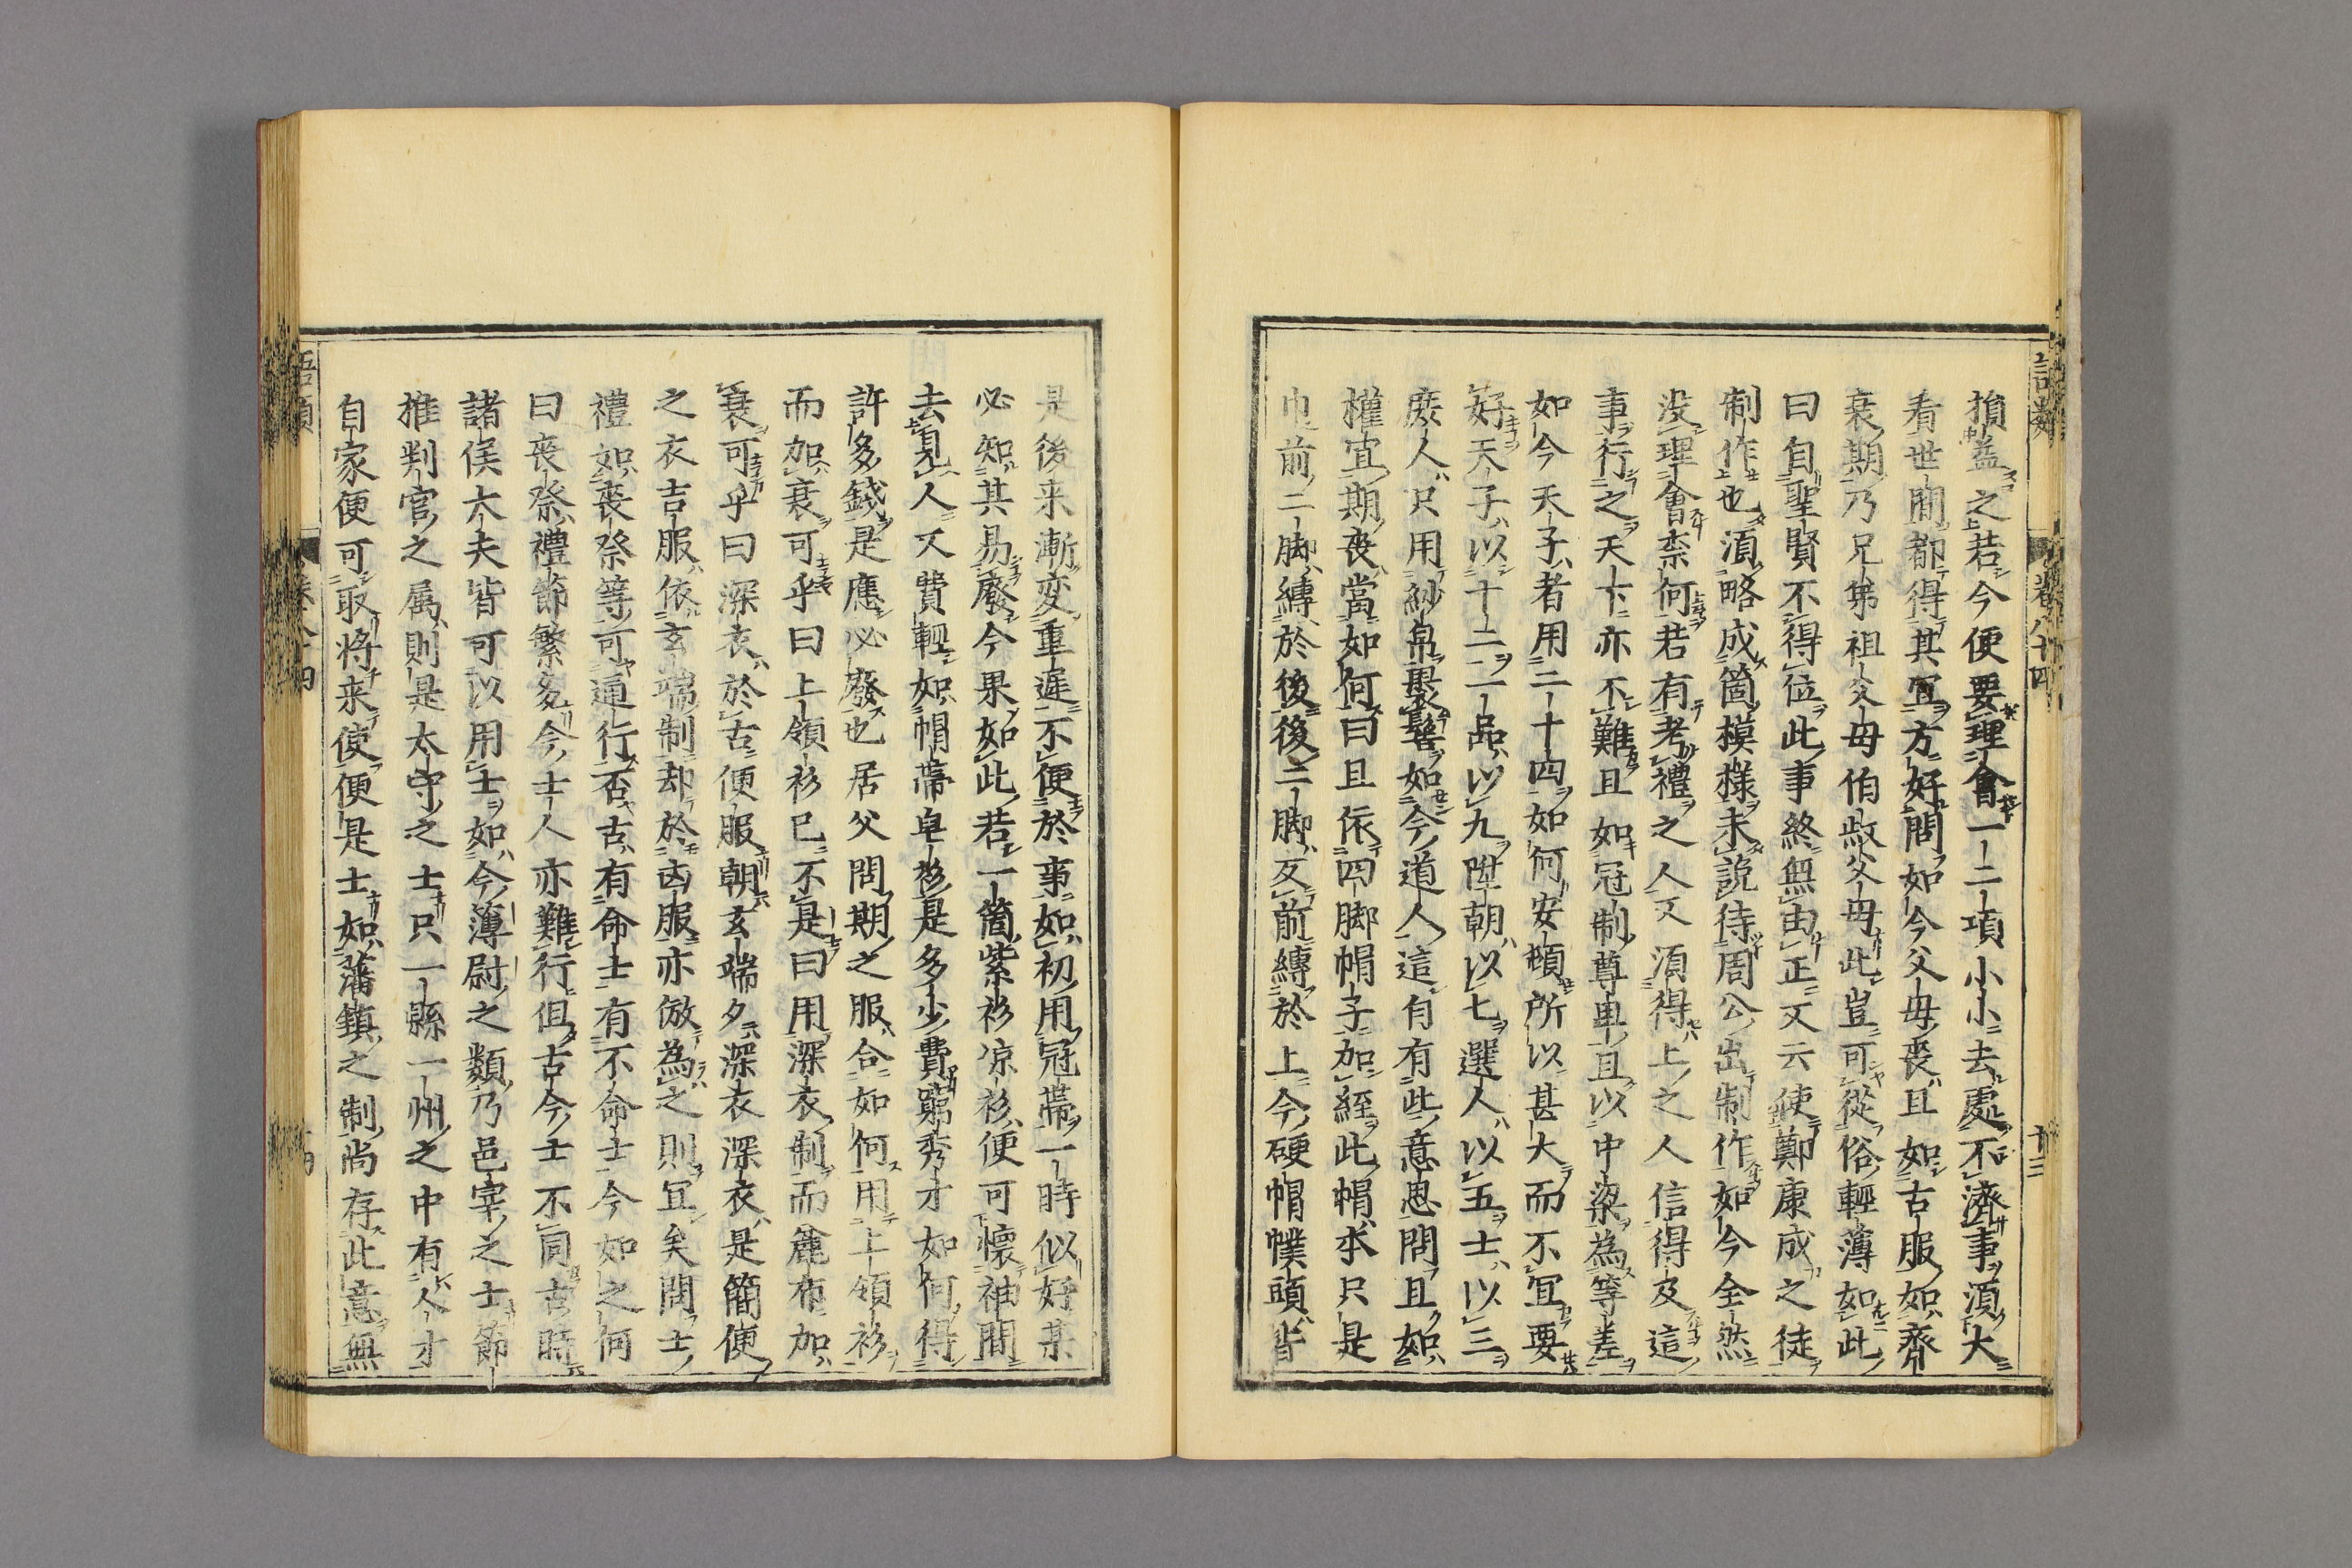 損益之若今便要理會一二項小小去處不濟事須大
看世間都得其冝方好問如今父母喪且如古服如齊
衰期乃兄弟祖父母伯叔父母此豈可從俗輕薄如此
曰自聖賢不得位此事終無由正又云使鄭康成之徒
制作也須略成箇模様未說待周公出制作如今全然
没理會柰何若有考禮之人又須得上之人信得及這
事行之天下亦不難且如冠制尊卑且以中梁為等差
如今天子者用二十四如何安頓所以甚大而不冝要
好天子以十二一品以九陞朝以七選人以五士以三
庶人只用紗帛裹髻如今道人這自有些意思問且如
權宜期喪當如何曰且依四脚帽子加絰此帽本只是
巾前二脚縛於後後二脚反前縛於上今硬帽幞頭皆
是後来漸変重遲不便於事如初用冠帶一時似好某
必知其易廢今果如此若一箇紫衫凉衫便可懷袖間
去見人又費輕如帽帶皁衫是多少費窮秀才如何得
許多錢是應必廢也居父問期之服合如何用上領衫
而加衰可乎曰上領衫已不是曰用深衣制而麄布加
衰可乎曰深衣於古便服朝玄端夕深衣深衣是簡便
之衣吉服依玄端制却於凶服亦倣為之則冝矣問士
禮如喪祭等可通行否古有命士有不命士今如之何
曰喪祭禮節繁多今士人亦難行但古今士不同古時
諸侯大夫皆可以用士如今薄尉之類乃邑宰之士節
推判官之属則是太守之士只一縣一州之中有人才
自家便可取将来使便是士如藩鎮之制尚存此意無
語類
卷八十四
廿三
語類